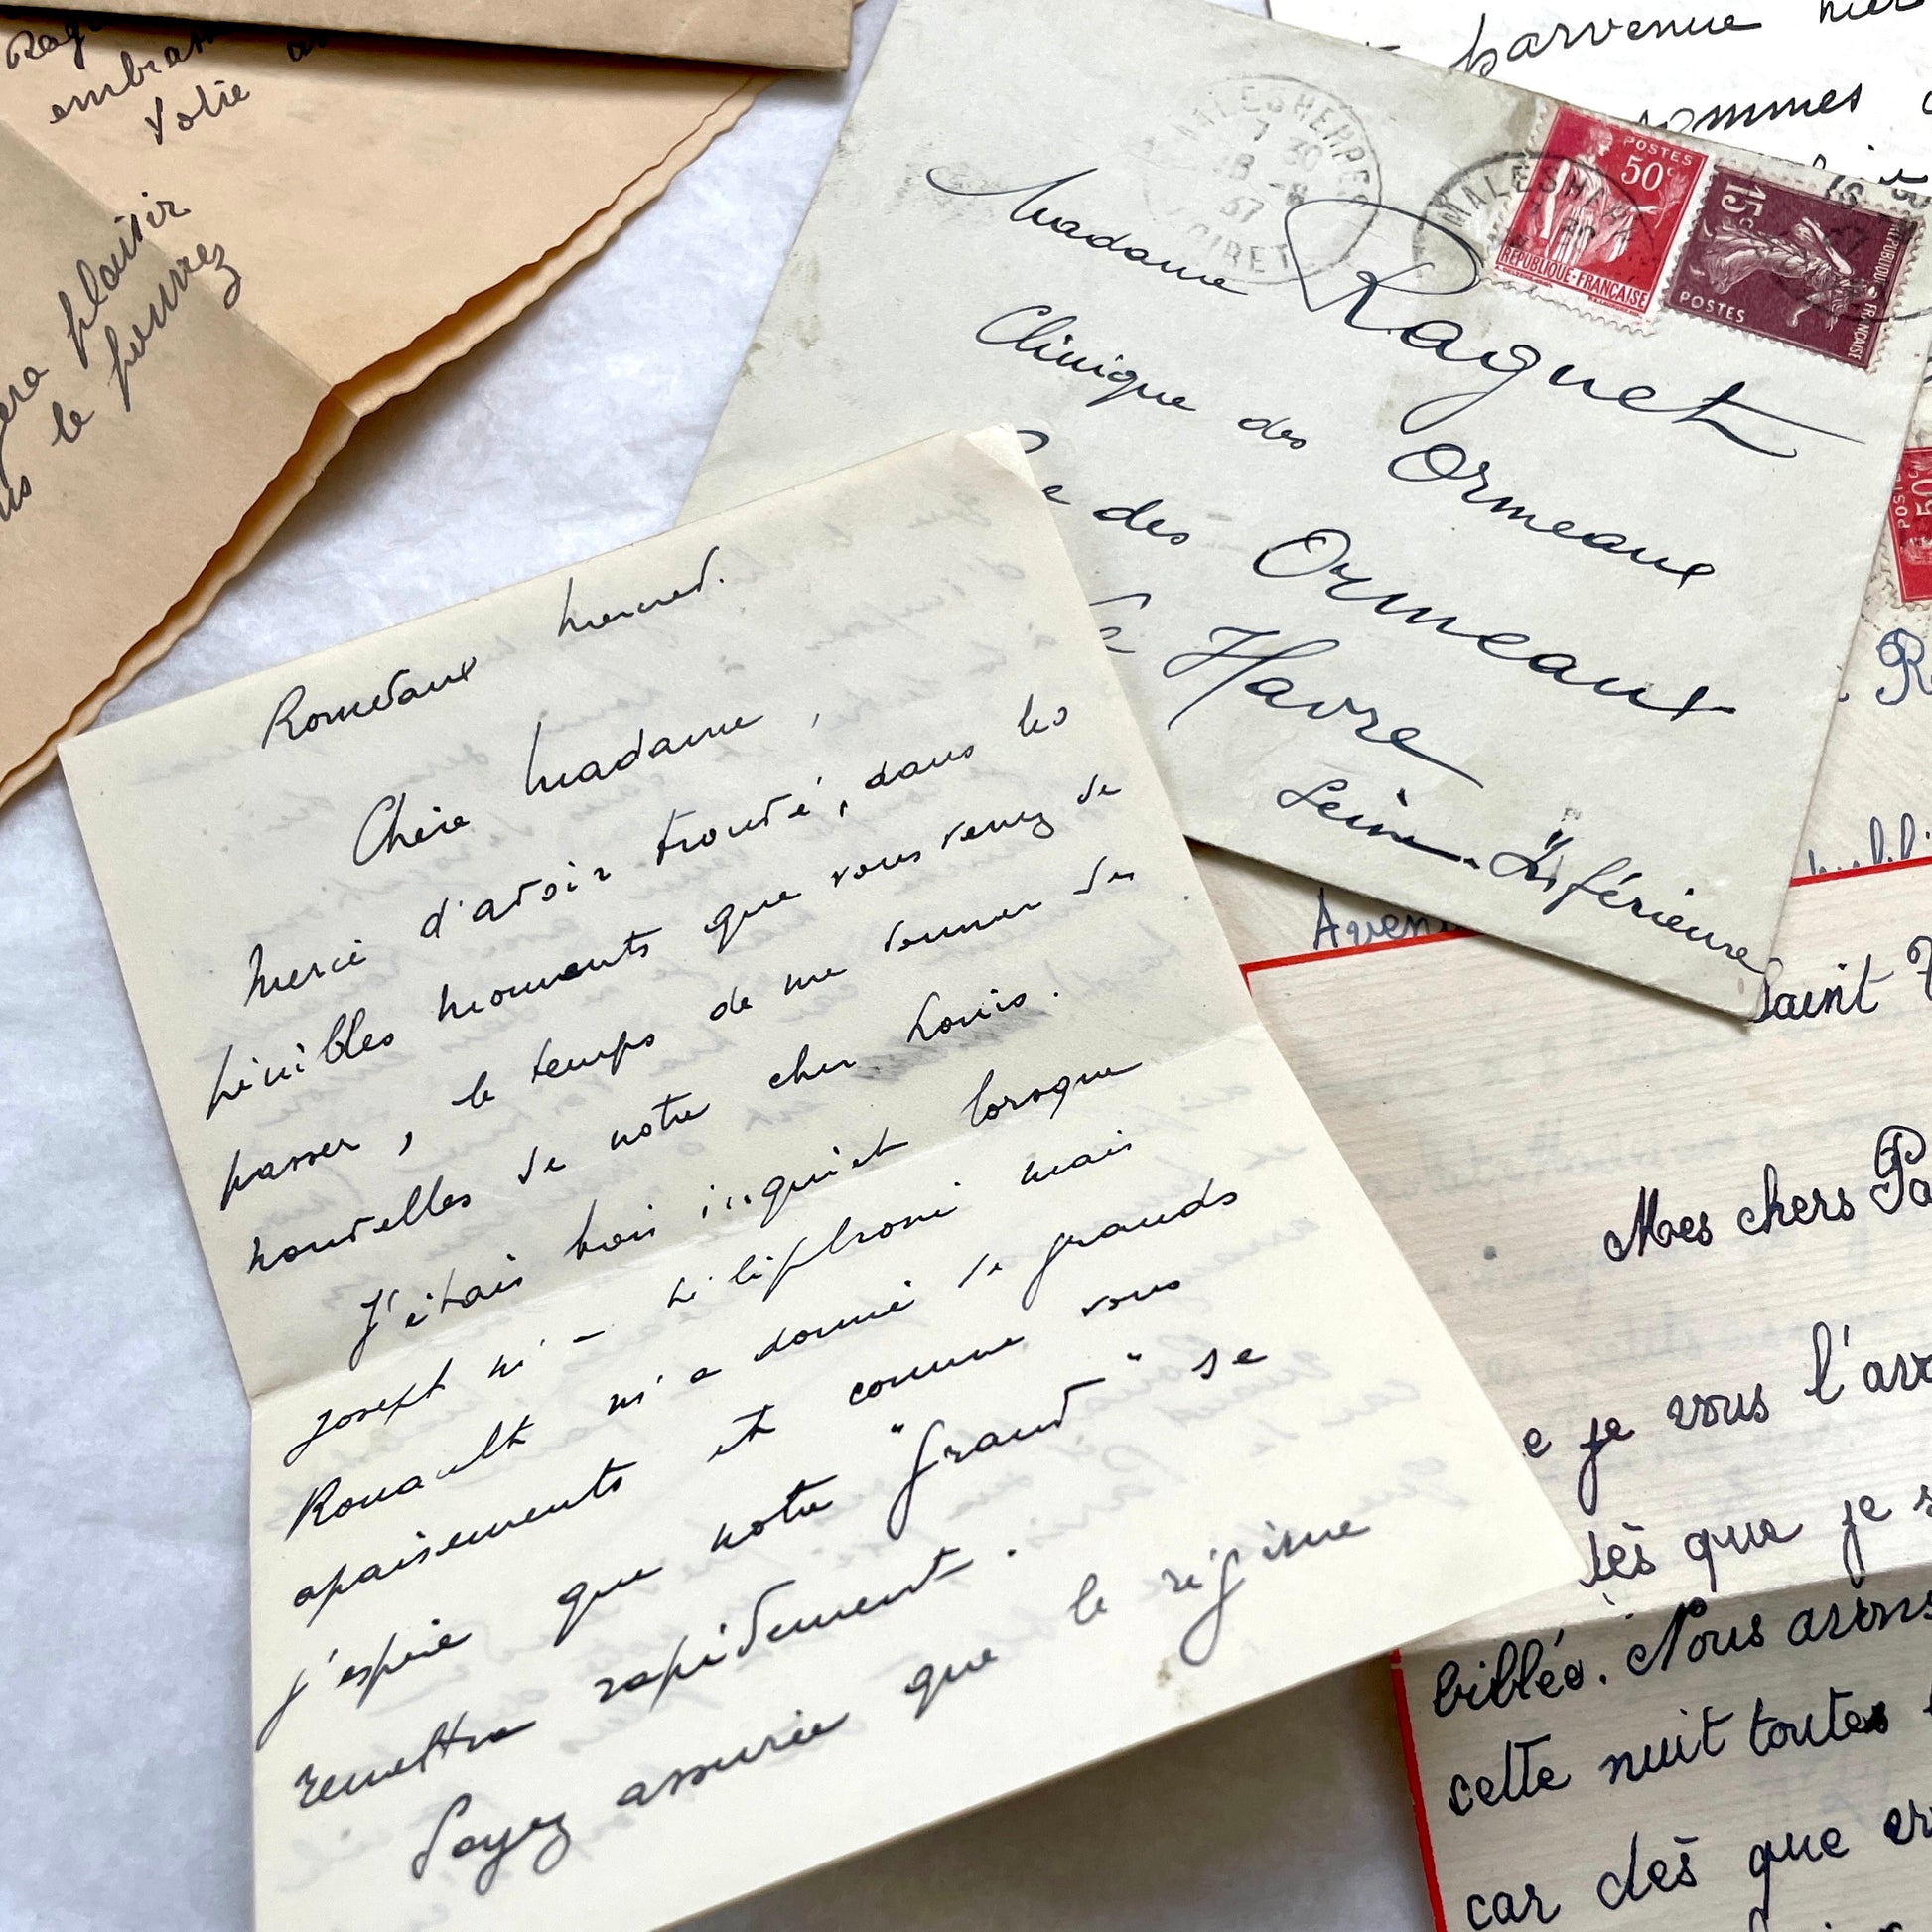 embrass
Votre
plaisir
le pourrez
parvenue hier
sommes
MALESHERBES
7 30
18 -8
37
LOIRET
POSTES
50c
REPUBLIQUE-FRANÇAISE
15c
POSTES
REPUBLIQUE FRANÇAISE
MALESHER
Madame Raguet
Clinique des Ormeaux
des Ormeaux
Le Havre
Seine-Inférieure
POSTES
50
Aven
mercred.
Chère Madame,
Merci d'avoir trouvé, dans les
pénibles moments que vous venez de
passer, le temps de me donner des
nouvelles de notre cher Louis.
J'étais bien inquiet lorsque
Joseph m'a téléphoné mais
Rouault m'a donné de grands
apaisements et comme vous
j'espère que notre "Grand" se
remettra rapidement.
Soyez assurée que le régime
Saint
Mes chers Pa
e je vous l'av
tès que je s
billés. Nous avons
cette nuit toutes
car dès que